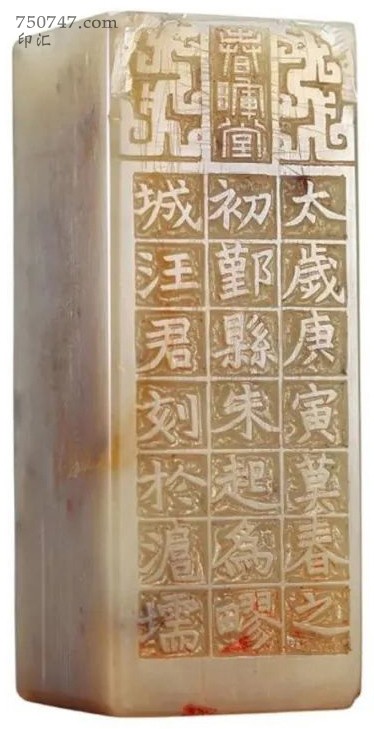 750747.com
印汇
春暉堂
太歲庚寅莫春之
初鄞縣朱起為鄝
城汪君刻於滬壖